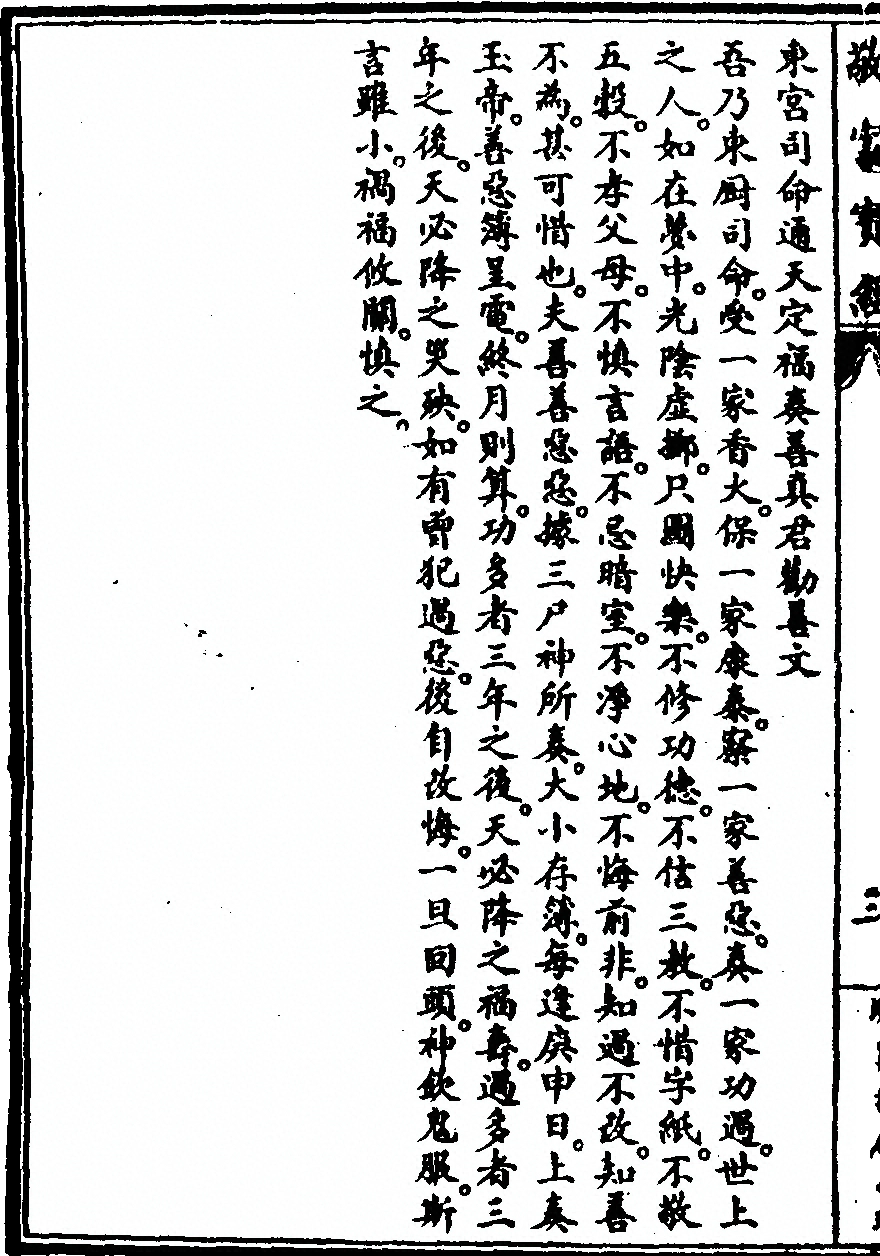 敬竈寶經
三
東宮司命通天定福奏善真君勸善文
吾乃東厨司命。受一家香火。保一家康泰。察一家善惡。奏一家功過。世上
之人。如在夢中。光陰虛擲。只圖快樂。不修功德。不信三教。不惜字紙。不敬
五穀。不孝父母。不慎言語。不忌暗室。不淨心地。不悔前非。知過不改。知善
不為。甚可惜也。夫善善惡惡。據三尸神所奏。大小存簿。每逢庚申日。上奏
玉帝。善惡簿呈電。終月則算。功多者三年之後。天必降之福壽。過多者三
年之後。天必降之災殃。如有曾犯過惡。後自改悔。一旦回頭。神欽鬼服。斯
言雖小。禍福攸關。慎之。